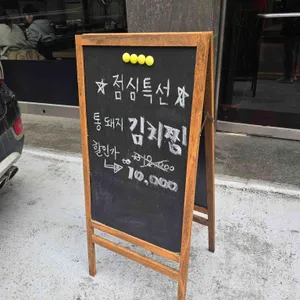 ☆점심특선☆
통돼지 김치찜
할인가
→ 10,000